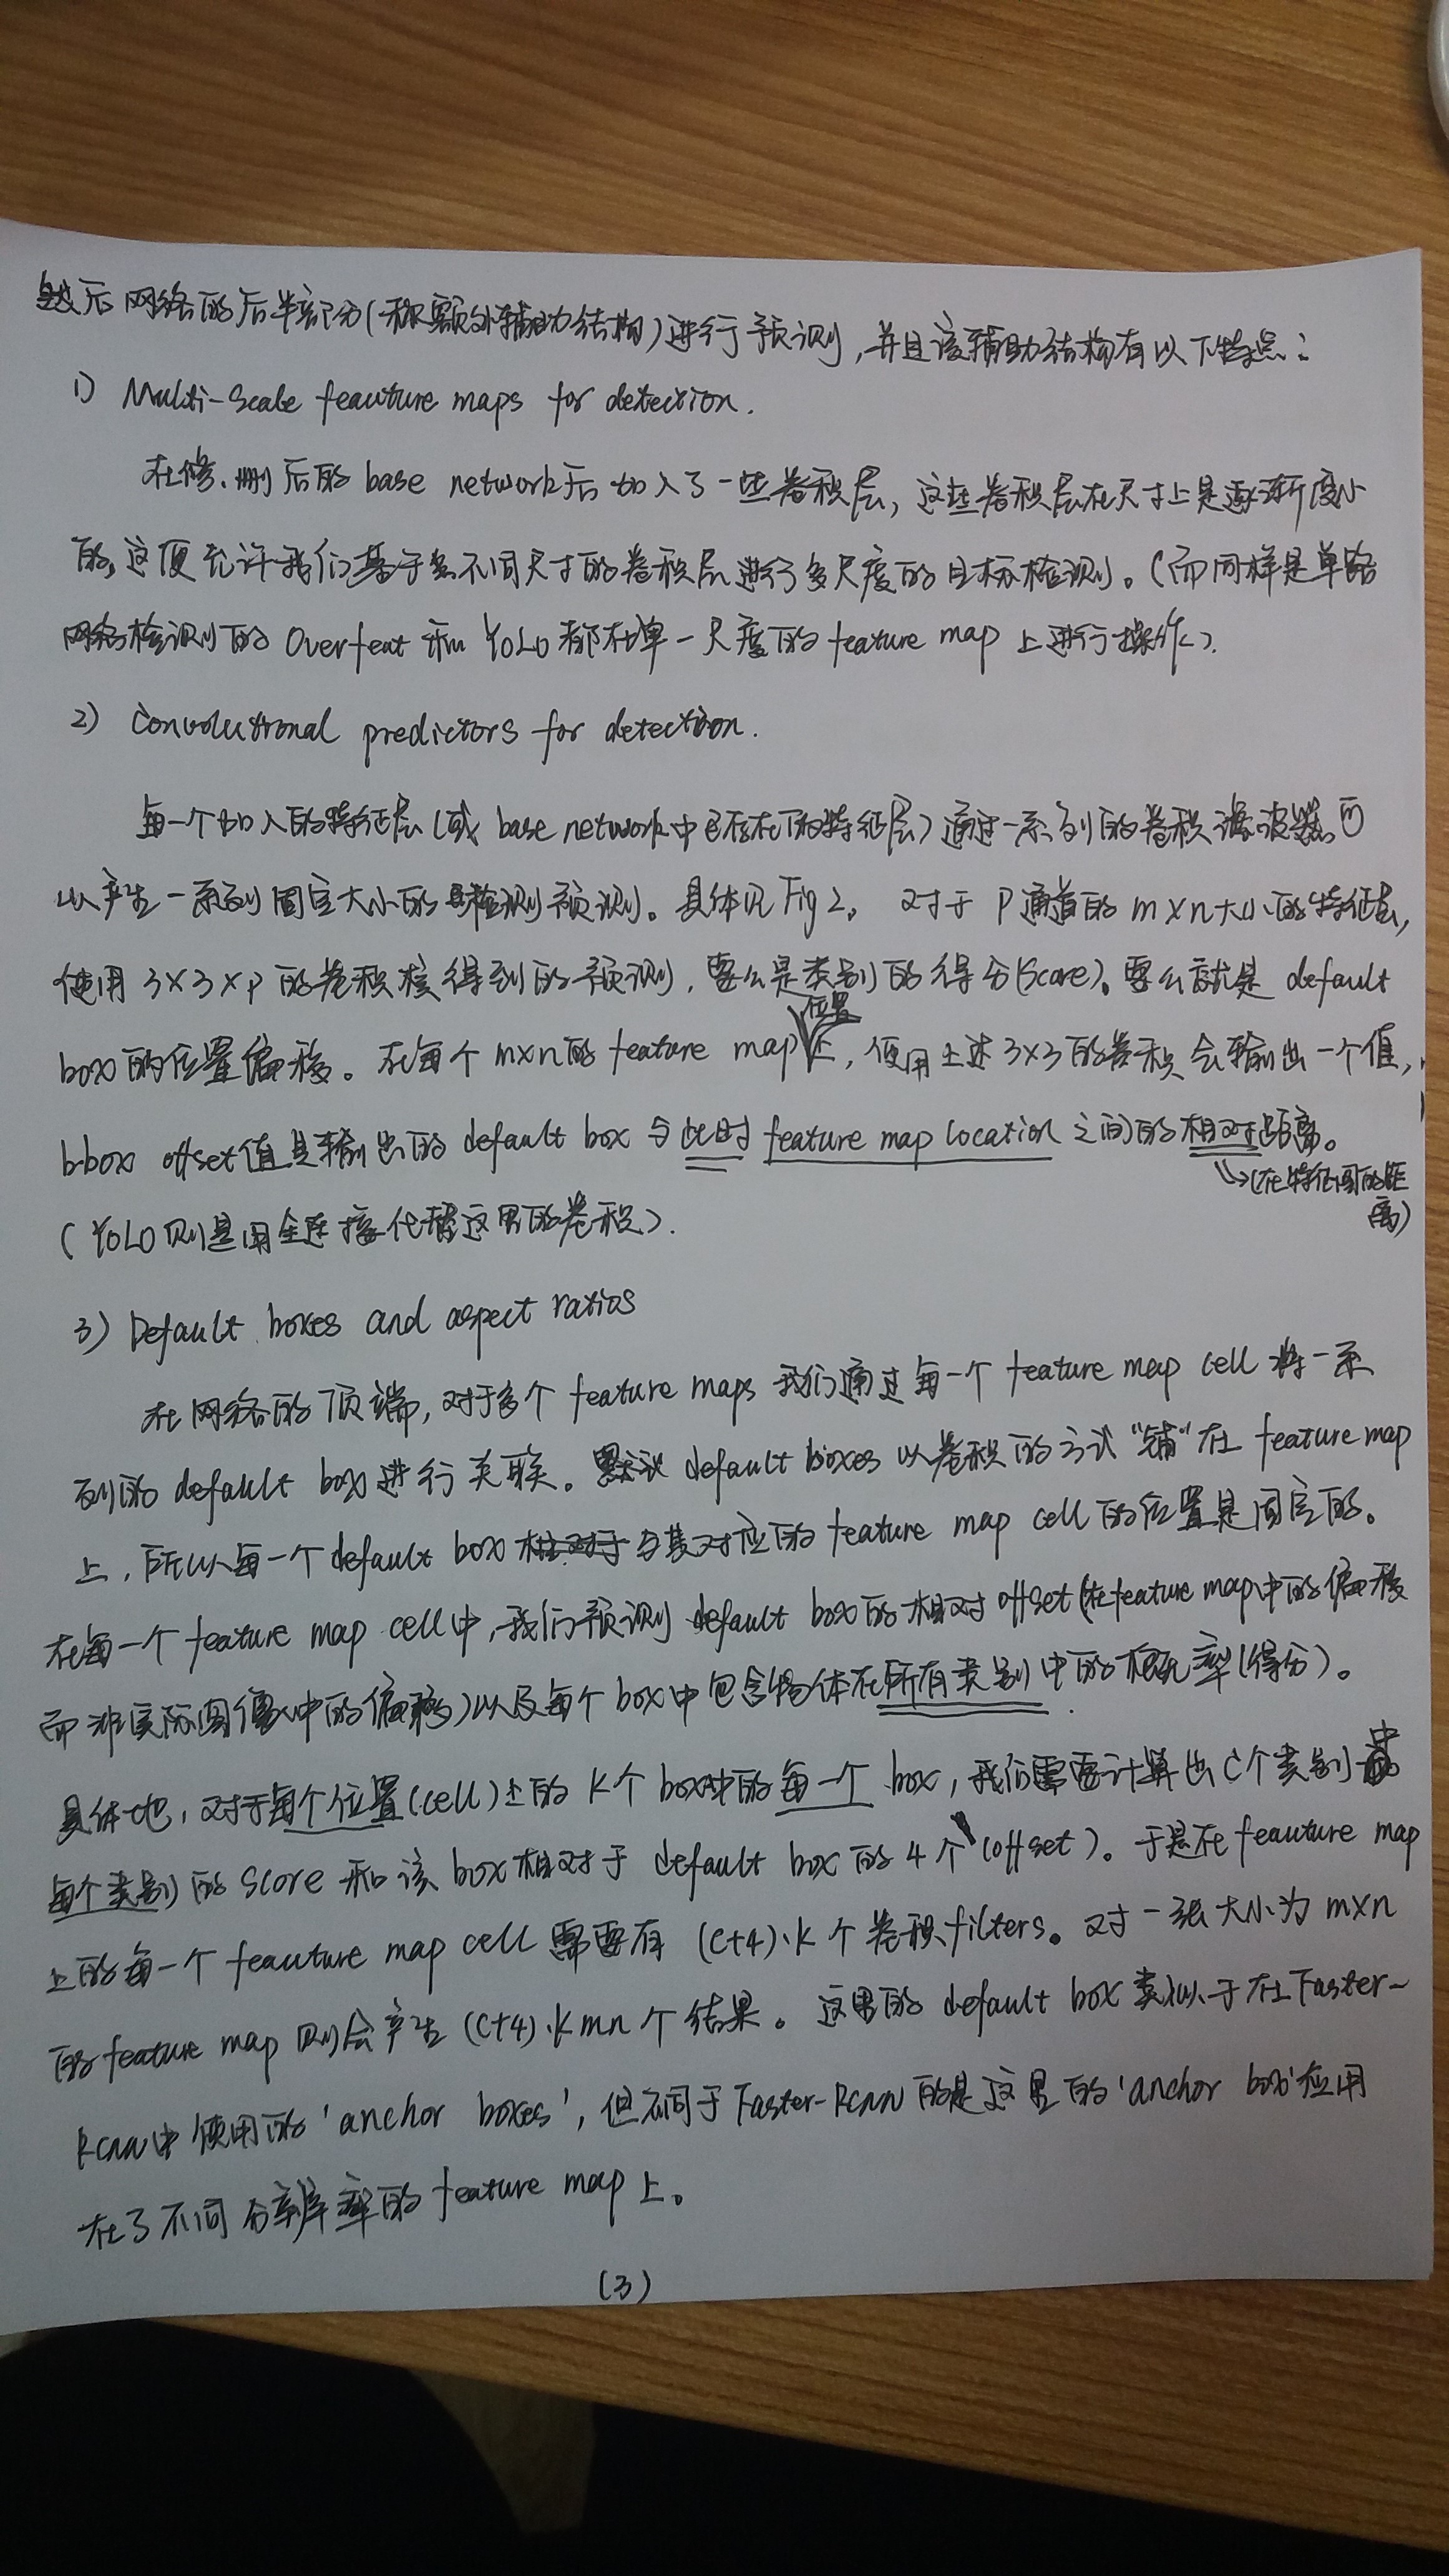 然后网络的后半部分(称额外辅助结构)进行预测,并且该辅助结构有以下特点:
1) Multi-Scale feauture maps for detection.
在修、删后的 base network后加入了一些卷积层,这些卷积层在尺寸上是逐渐变小
的,这便允许我们基于多不同尺寸的卷积层进行多尺度的目标检测。(而同样是单路
网络检测的 Overfeat 和 YOLO 都在单一尺度的 feature map 上进行操作).
2) Convolutional predictors for detection.
每一个加入的特征层(或 base network中已存在的特征层)通过一系列的卷积滤波器,可
以产生一系列固定大小的检测预测。具体见 Fig 2。 对于 P 通道的 m×n大小的特征层,
使用 3×3×P 的卷积核得到的预测,要么是类别的得分(Score)。要么就是 default
box的位置偏移。在每个 m×n的 feature map位置上,使用上述3×3的卷积会输出一个值,
bbox offset值是输出的 default box 与此时 feature map location 之间的相对距离。
↳(在特征图的距
离)
(YOLO则是用全连接代替这里的卷积).
3) Default boxes and aspect ratios
在网络的顶端,对于多个 feature maps 我们通过每一个 feature map cell 将一系
列的 default box进行关联。 default boxes 以卷积的方式“铺”在 feature map
上,所以每一个 default box 与其对应的 feature map cell 的位置是固定的。
在每一个 feature map cell中,我们预测 default box的相对 offset(在feature map中的偏移
而非实际图像中的偏移)以及每个 box中包含物体在所有类别中的概率(得分)。
具体地,对于每个位置(cell)上的 K个 box中的每一个 box,我们需要计算出 C个类别中
每个类别的 score 和该 box相对于 default box的 4个(offset)。于是在 feauture map
上的每一个 feauture map cell 需要有 (C+4)·K 个卷积filters。对一张大小为 m×n
的feature map 则会产生 (C+4)·kmn 个结果。这里的 default box 类似于在Faster-
Rcnn中使用的'anchor boxes',但不同于 Faster-Rcnn 的是这里的'anchor box'应用
在了不同分辨率的 feature map上。
(3)